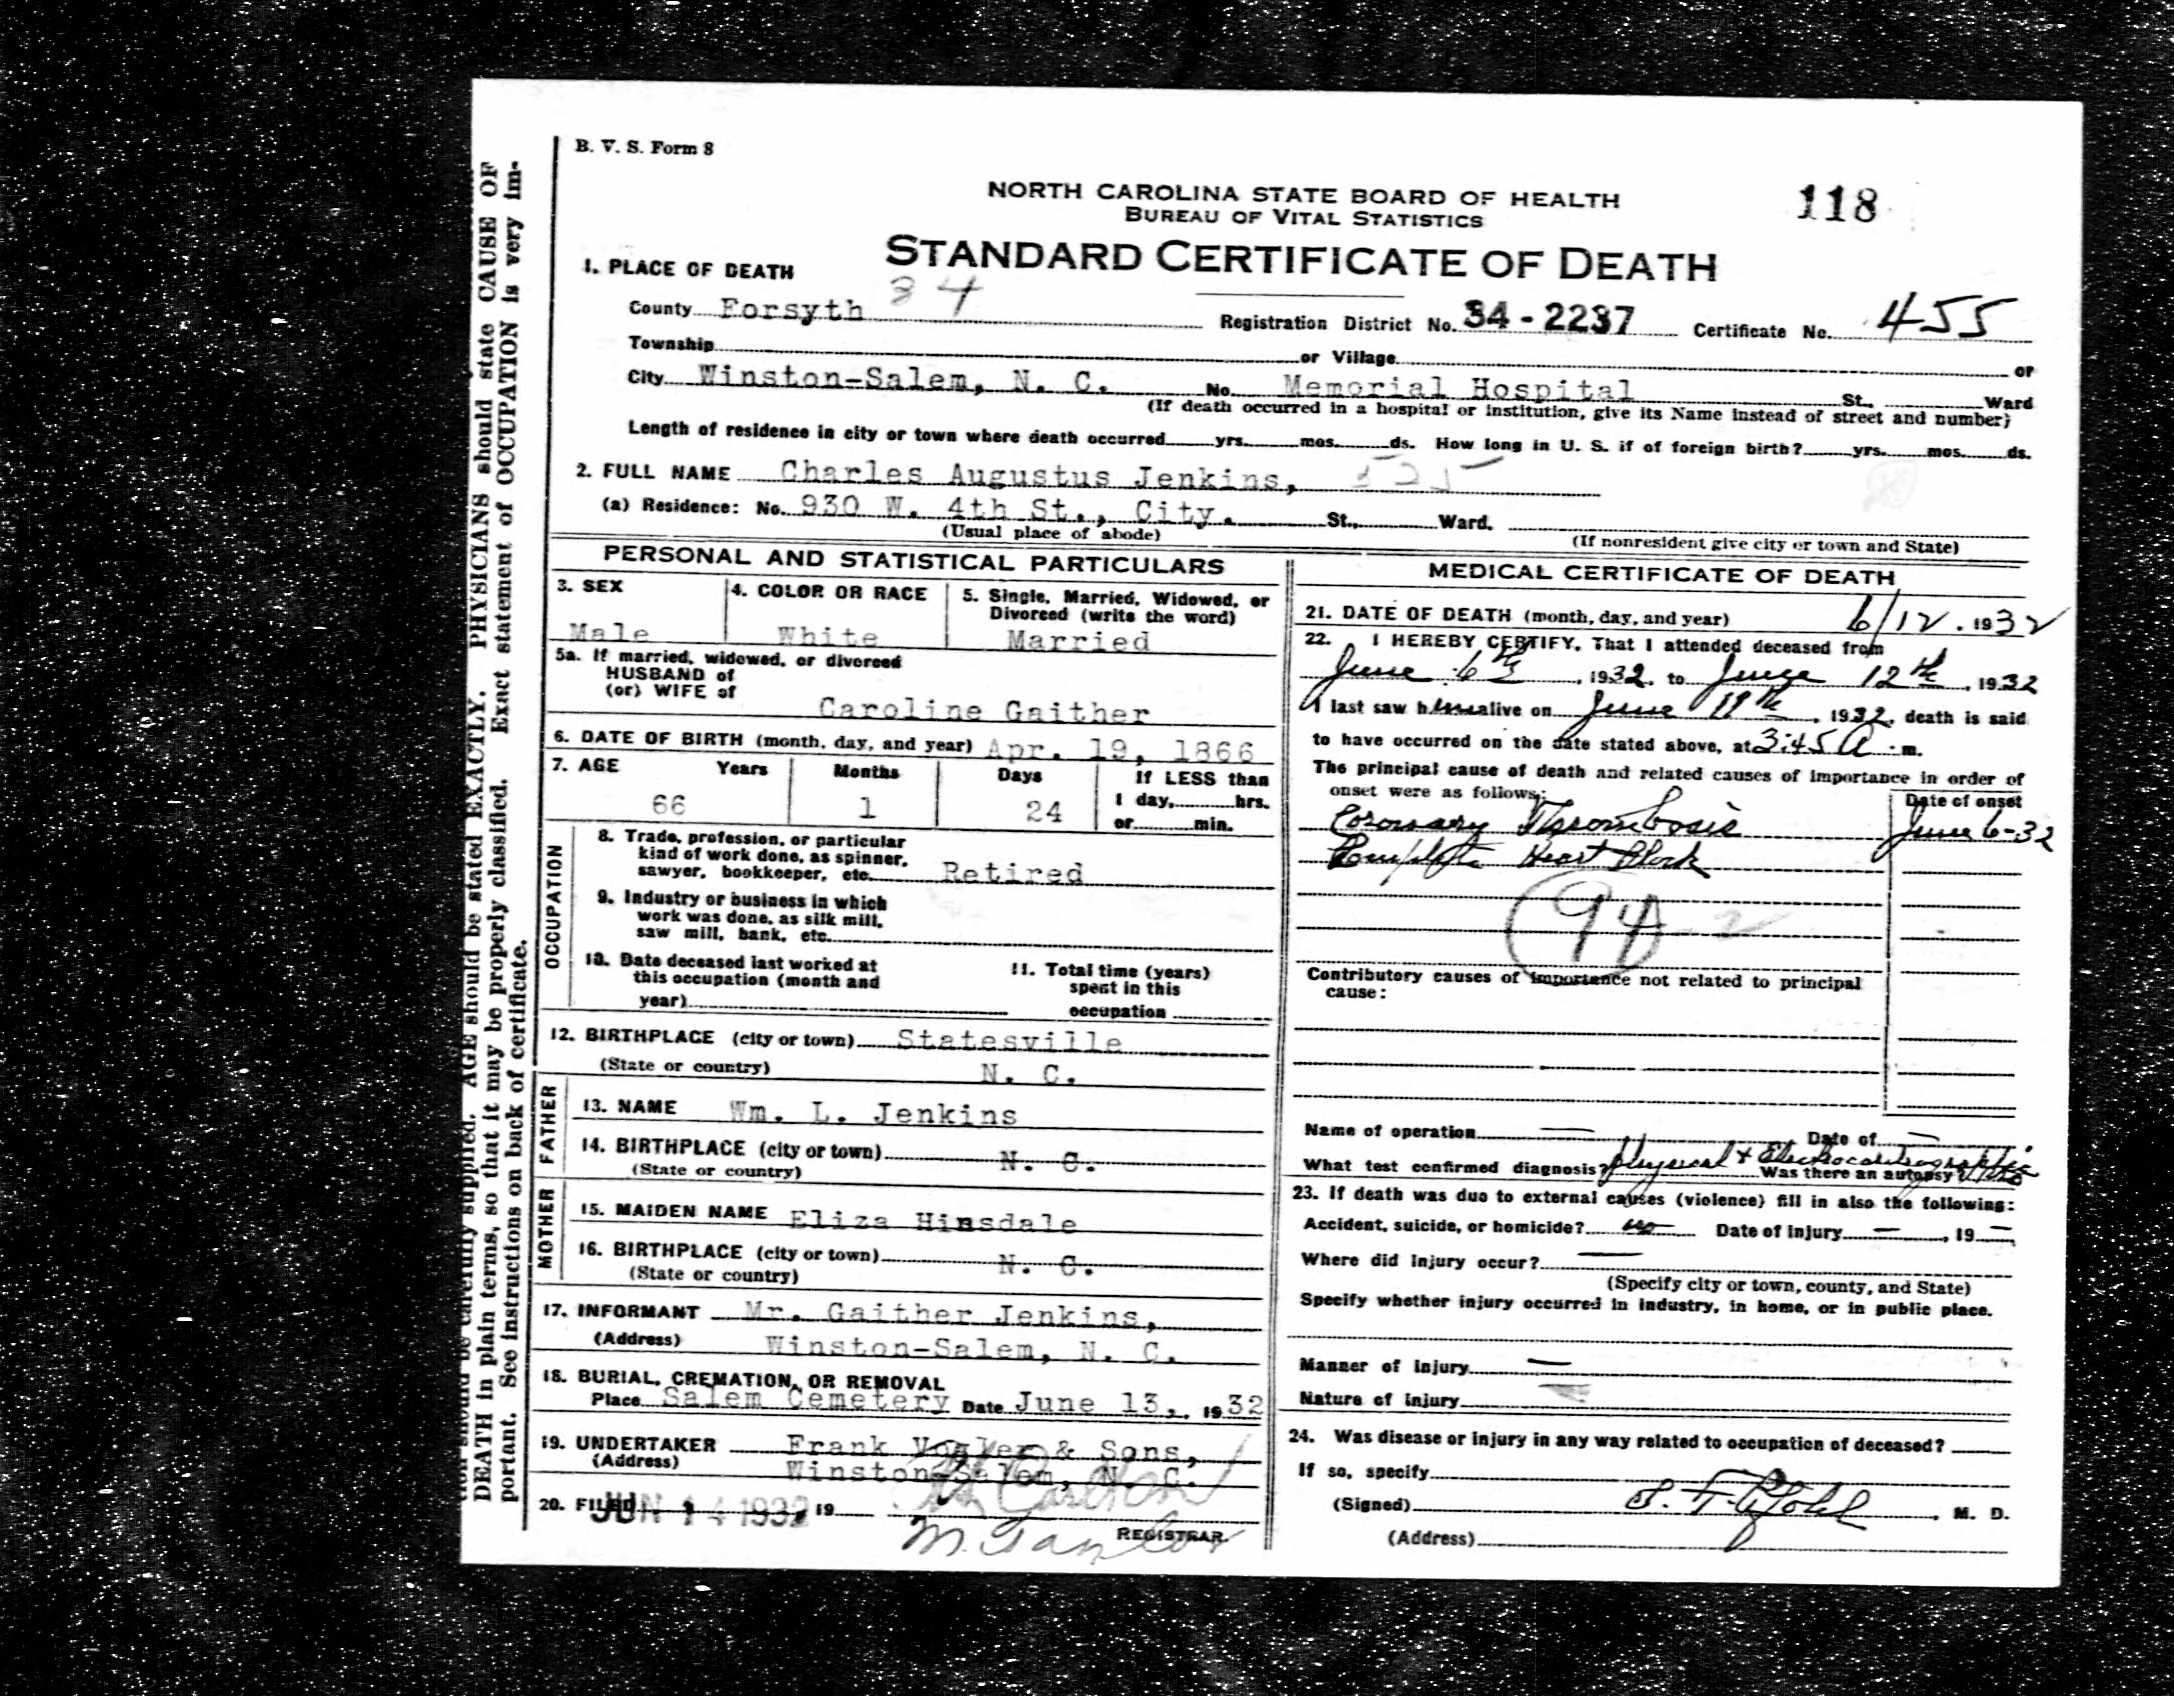 B. V. S. Form 8
NORTH CAROLINA STATE BOARD OF HEALTH
BUREAU OF VITAL STATISTICS
118
STANDARD CERTIFICATE OF DEATH
1. PLACE OF DEATH
34
County Forsyth Registration District No. 34-2237 Certificate No. 455
Township or Village or
City Winston-Salem, N. C. No. Memorial Hospital St., Ward
(If death occurred in a hospital or institution, give its Name instead of street and number)
Length of residence in city or town where death occurred yrs. mos. ds. How long in U. S. if of foreign birth? yrs. mos. ds.
2. FULL NAME Charles Augustus Jenkins,
(a) Residence: No. 930 W. 4th St., City. St., Ward.
(Usual place of abode) (If nonresident give city or town and State)
PERSONAL AND STATISTICAL PARTICULARS
3. SEX 4. COLOR OR RACE 5. Single, Married, Widowed, or
Divorced (write the word)
Male White Married
5a. If married, widowed, or divorced
HUSBAND of
(or) WIFE of
Caroline Gaither
6. DATE OF BIRTH (month, day, and year) Apr. 19, 1866
7. AGE Years Months Days If LESS than
66 1 24 1 day, hrs.
or min.
OCCUPATION
8. Trade, profession, or particular
kind of work done, as spinner,
sawyer, bookkeeper, etc. Retired
9. Industry or business in which
work was done, as silk mill,
saw mill, bank, etc.
10. Date deceased last worked at
this occupation (month and
year)
11. Total time (years)
spent in this
occupation
12. BIRTHPLACE (city or town) Statesville
(State or country) N. C.
FATHER
13. NAME Wm. L. Jenkins
14. BIRTHPLACE (city or town) N. C.
(State or country)
MOTHER
15. MAIDEN NAME Eliza Hinsdale
16. BIRTHPLACE (city or town) N. C.
(State or country)
17. INFORMANT Mr. Gaither Jenkins,
(Address) Winston-Salem, N. C.
18. BURIAL, CREMATION, OR REMOVAL
Place Salem Cemetery Date June 13, 1932
19. UNDERTAKER Frank Vogler & Sons,
(Address) Winston-Salem, N. C.
20. FILED JUN 14 1932 19
REGISTRAR.
MEDICAL CERTIFICATE OF DEATH
21. DATE OF DEATH (month, day, and year) 6/12. 1932
22. I HEREBY CERTIFY, That I attended deceased from
June 6th, 1932, to June 12th, 1932
I last saw him alive on June 11th, 1932, death is said
to have occurred on the date stated above, at 3:45 A. m.
The principal cause of death and related causes of importance in order of
onset were as follows: Date of onset
Coronary Thrombosis June 6-32
Complete Heart Block
94-2
Contributory causes of importance not related to principal
cause:
Name of operation — Date of —
What test confirmed diagnosis? Physical & Electrocardiographic Was there an autopsy? No
23. If death was due to external causes (violence) fill in also the following:
Accident, suicide, or homicide? no Date of injury —, 19—
Where did injury occur? —
(Specify city or town, county, and State)
Specify whether injury occurred in industry, in home, or in public place.
Manner of injury —
Nature of injury
24. Was disease or injury in any way related to occupation of deceased?
If so, specify
(Signed) S. F. Pfohl, M. D.
(Address)
AGE should be stated EXACTLY. PHYSICIANS should state CAUSE OF
DEATH in plain terms, so that it may be properly classified. Exact statement of OCCUPATION is very im-
portant. See instructions on back of certificate.